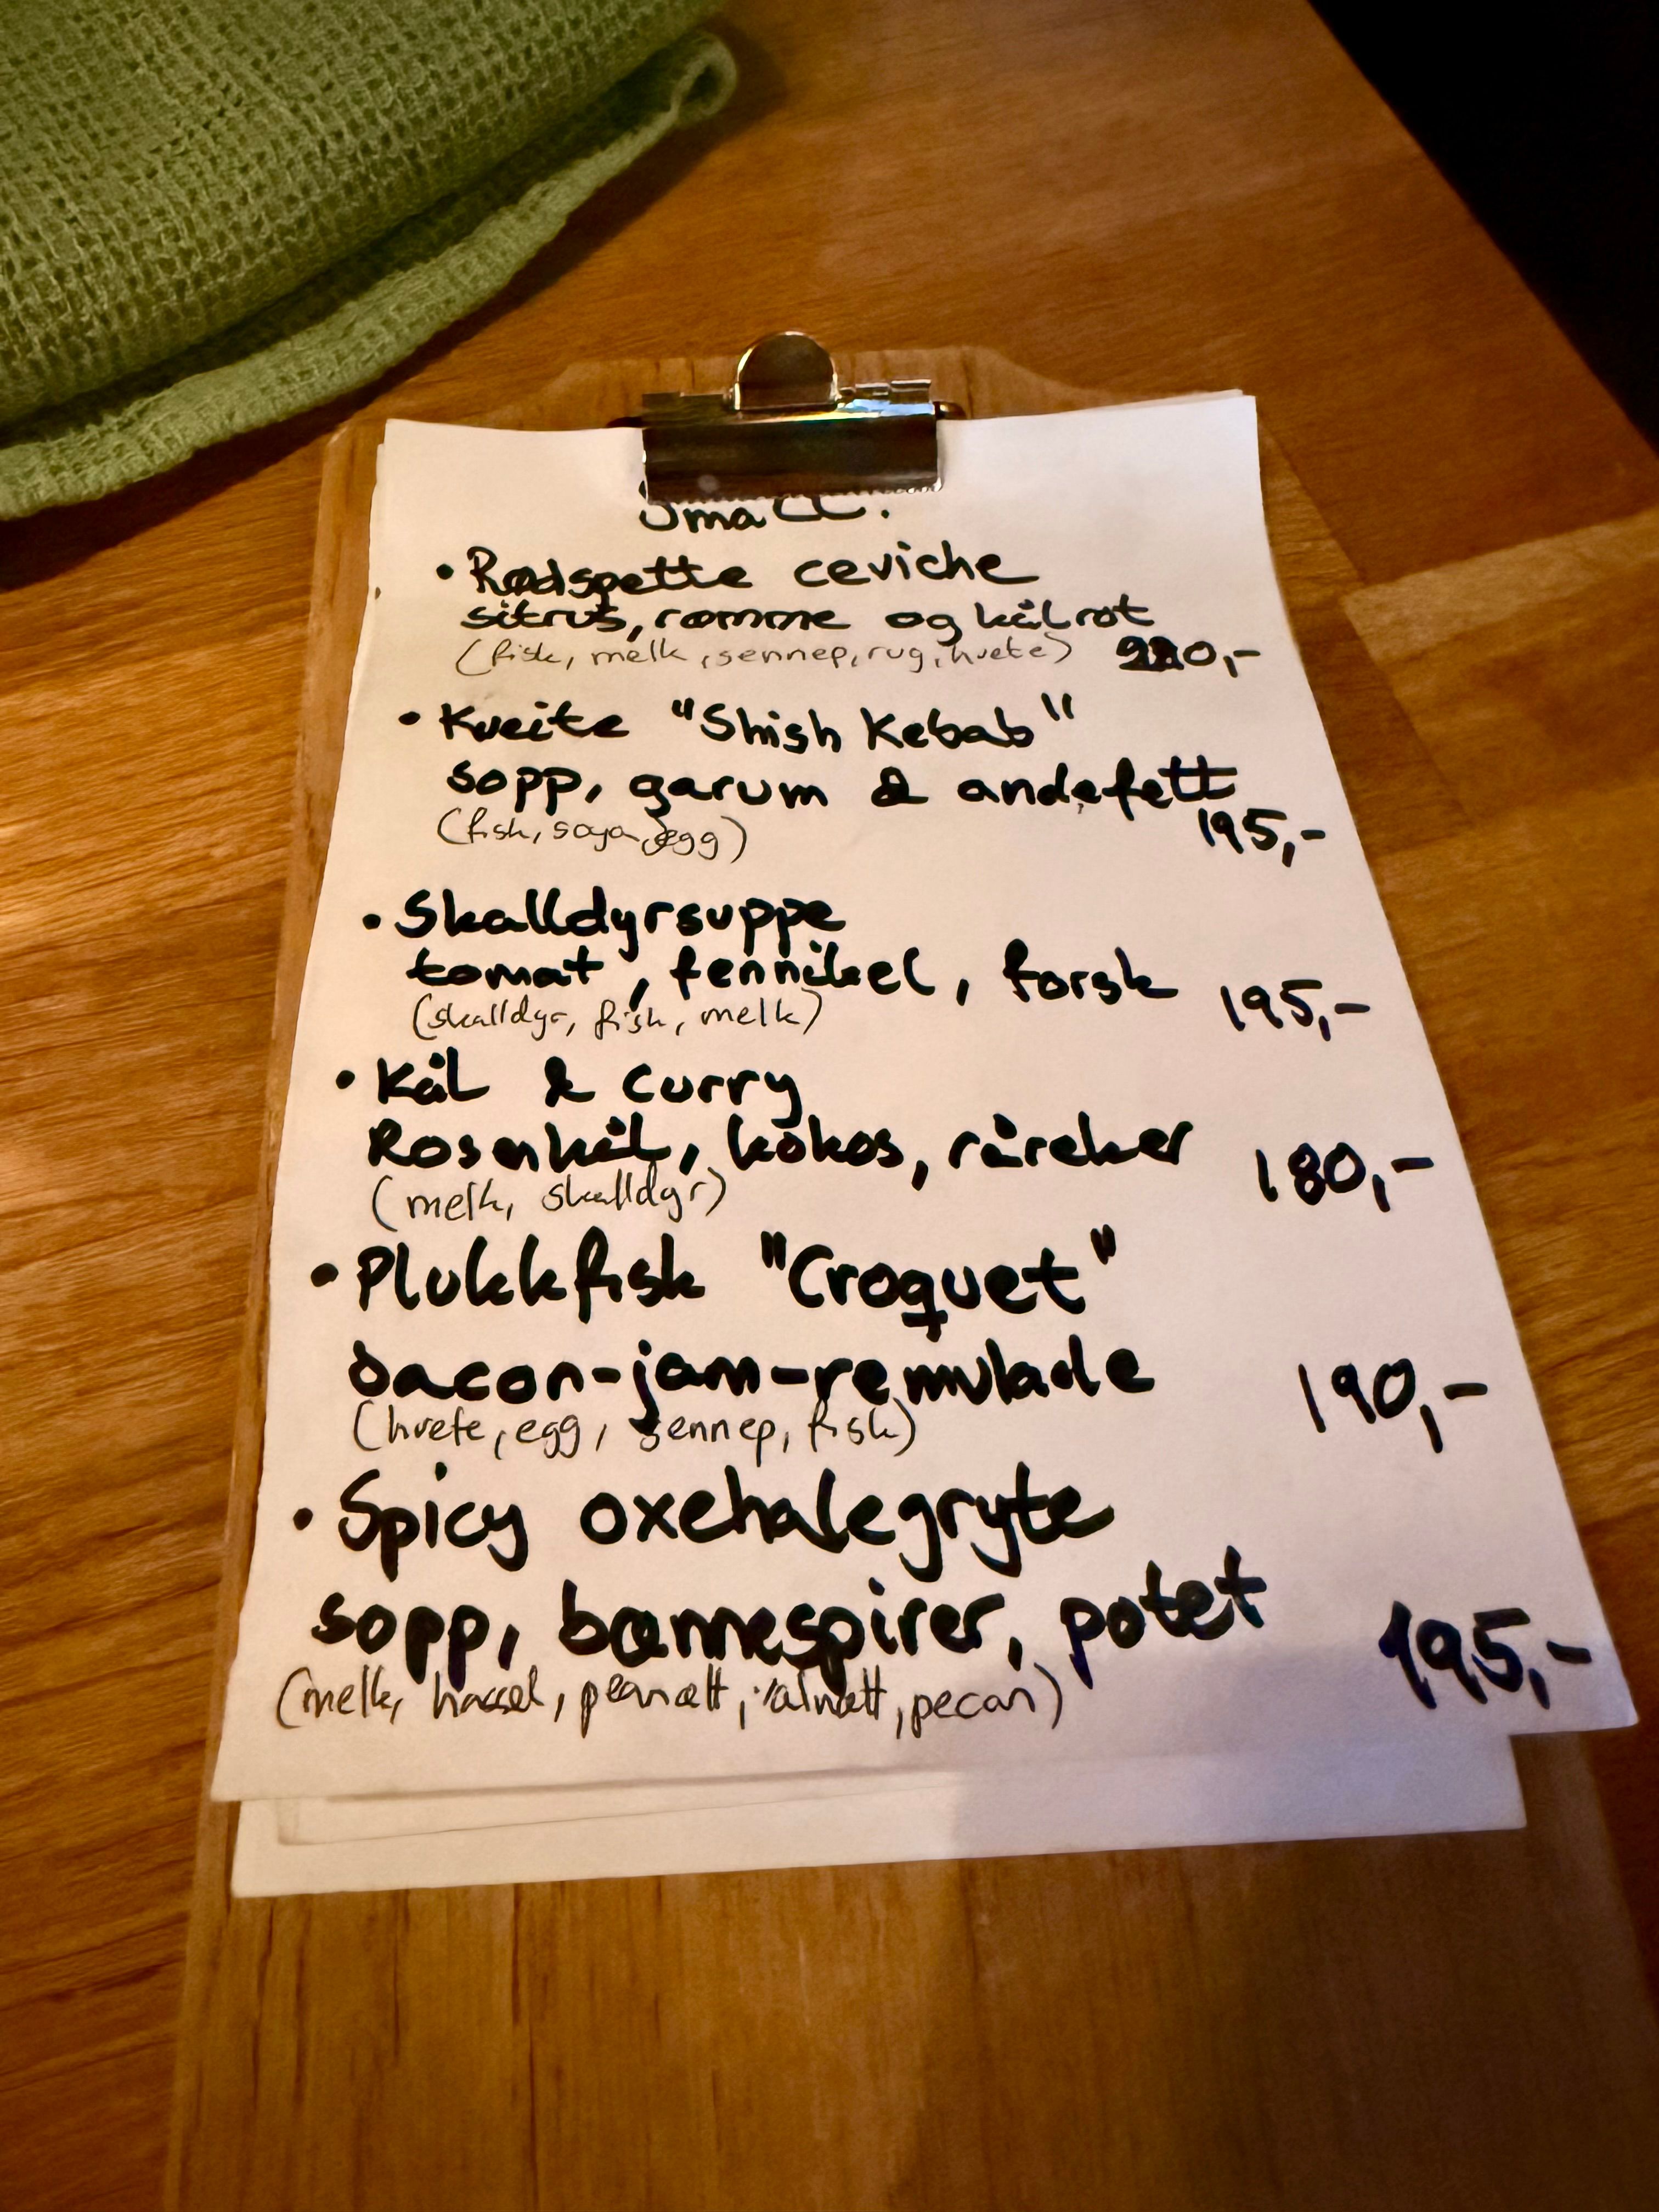 Small:
• Rødspette ceviche
sitrus, rømme og kålrot
(fisk, melk, sennep, rug, hvete)
• Kveite "Shish Kebab"
sopp, garum & andefett
(fish, soya, egg)
195,-
• Skalldyrsuppe
tomat, fennikel, torsk
(skalldyr, fish, melk)
195,-
• Kål & Curry
Rosenkål, kokos, råreker
(melk, skalldyr)
180,-
• Plukkfisk "Croquet"
bacon-jam-remulade
(hvete, egg, sennep, fisk)
190,-
• Spicy oxehalegryte
sopp, bønnespirer, potet
(melk, hassel, peanøtt, valnøtt, pecan)
195,-